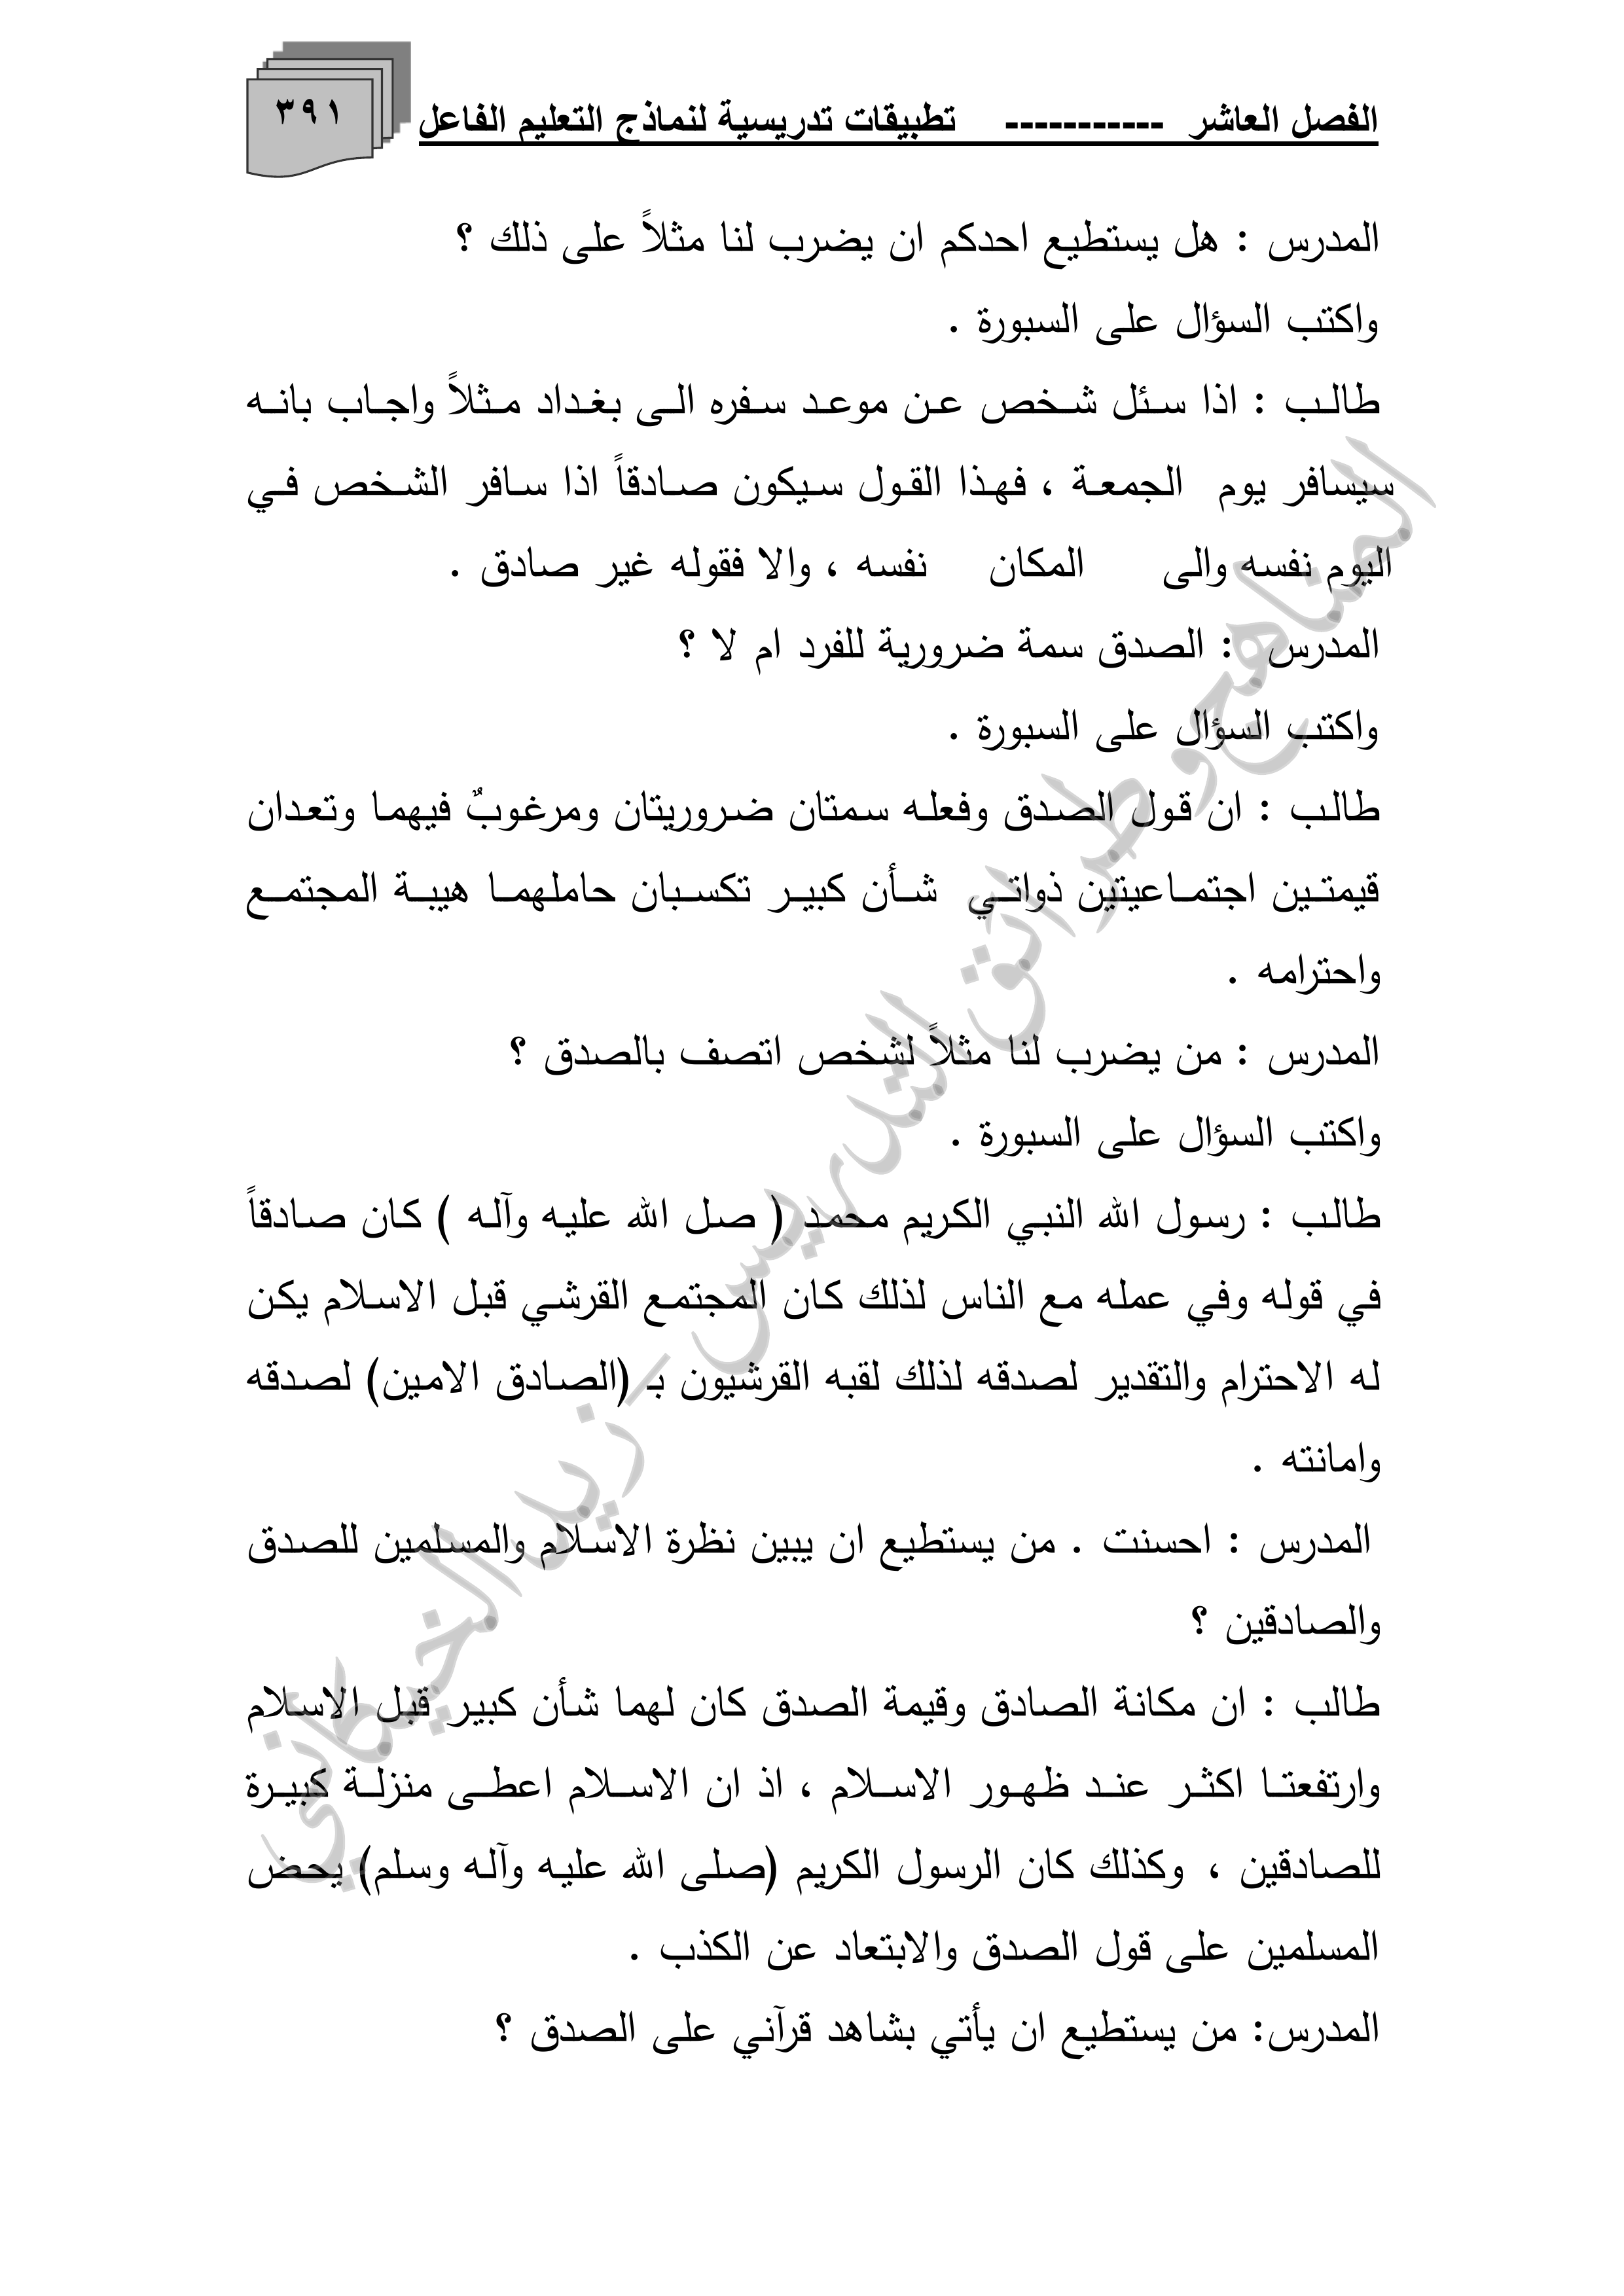 الفصل العاشر ----------- تطبيقات تدريسية لنماذج التعليم الفاعل
٣٩١
المدرس : هل يستطيع احدكم ان يضرب لنا مثلاً على ذلك ؟
واكتب السؤال على السبورة .
طالب : اذا سئل شخص عن موعد سفره الى بغداد مثلاً واجاب بانه
سيسافر يوم الجمعة ، فهذا القول سيكون صادقاً اذا سافر الشخص في
اليوم نفسه والى المكان نفسه ، والا فقوله غير صادق .
المدرس : الصدق سمة ضرورية للفرد ام لا ؟
واكتب السؤال على السبورة .
طالب : ان قول الصدق وفعله سمتان ضروريتان ومرغوبٌ فيهما وتعدان
قيمتين اجتماعيتين ذواتي شأن كبير تكسبان حاملهما هيبة المجتمع
واحترامه .
المدرس : من يضرب لنا مثلاً لشخص اتصف بالصدق ؟
واكتب السؤال على السبورة .
طالب : رسول الله النبي الكريم محمد ( صل الله عليه وآله ) كان صادقاً
في قوله وفي عمله مع الناس لذلك كان المجتمع القرشي قبل الاسلام يكن
له الاحترام والتقدير لصدقه لذلك لقبه القرشيون بـ (الصادق الامين) لصدقه
وامانته .
المدرس : احسنت . من يستطيع ان يبين نظرة الاسلام والمسلمين للصدق
والصادقين ؟
طالب : ان مكانة الصادق وقيمة الصدق كان لهما شأن كبير قبل الاسلام
وارتفعتا اكثر عند ظهور الاسلام ، اذ ان الاسلام اعطى منزلة كبيرة
للصادقين ، وكذلك كان الرسول الكريم (صلى الله عليه وآله وسلم) يحض
المسلمين على قول الصدق والابتعاد عن الكذب .
المدرس: من يستطيع ان يأتي بشاهد قرآني على الصدق ؟
المناهج وطرائق التدريس - زيد الخيكاني